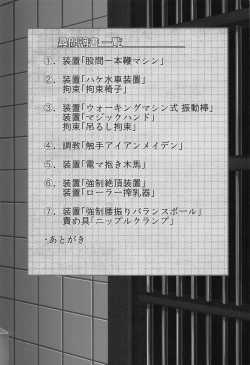 ①．装置「股間一本鞭マシン」
②．装置「ハケ水車装置」
拘束「拘束椅子」
③．装置「ウォーキングマシン式 振動棒」
装置「マジックハンド」
拘束「吊るし拘束」
④．調教「触手アイアンメイデン」
⑤．装置「電マ抱き木馬」
⑥．装置「強制絶頂装置」
装置「ローラー搾乳器」
⑦．装置「強制腰振りバランスボール」
責め具「ニップルクランプ」
・あとがき